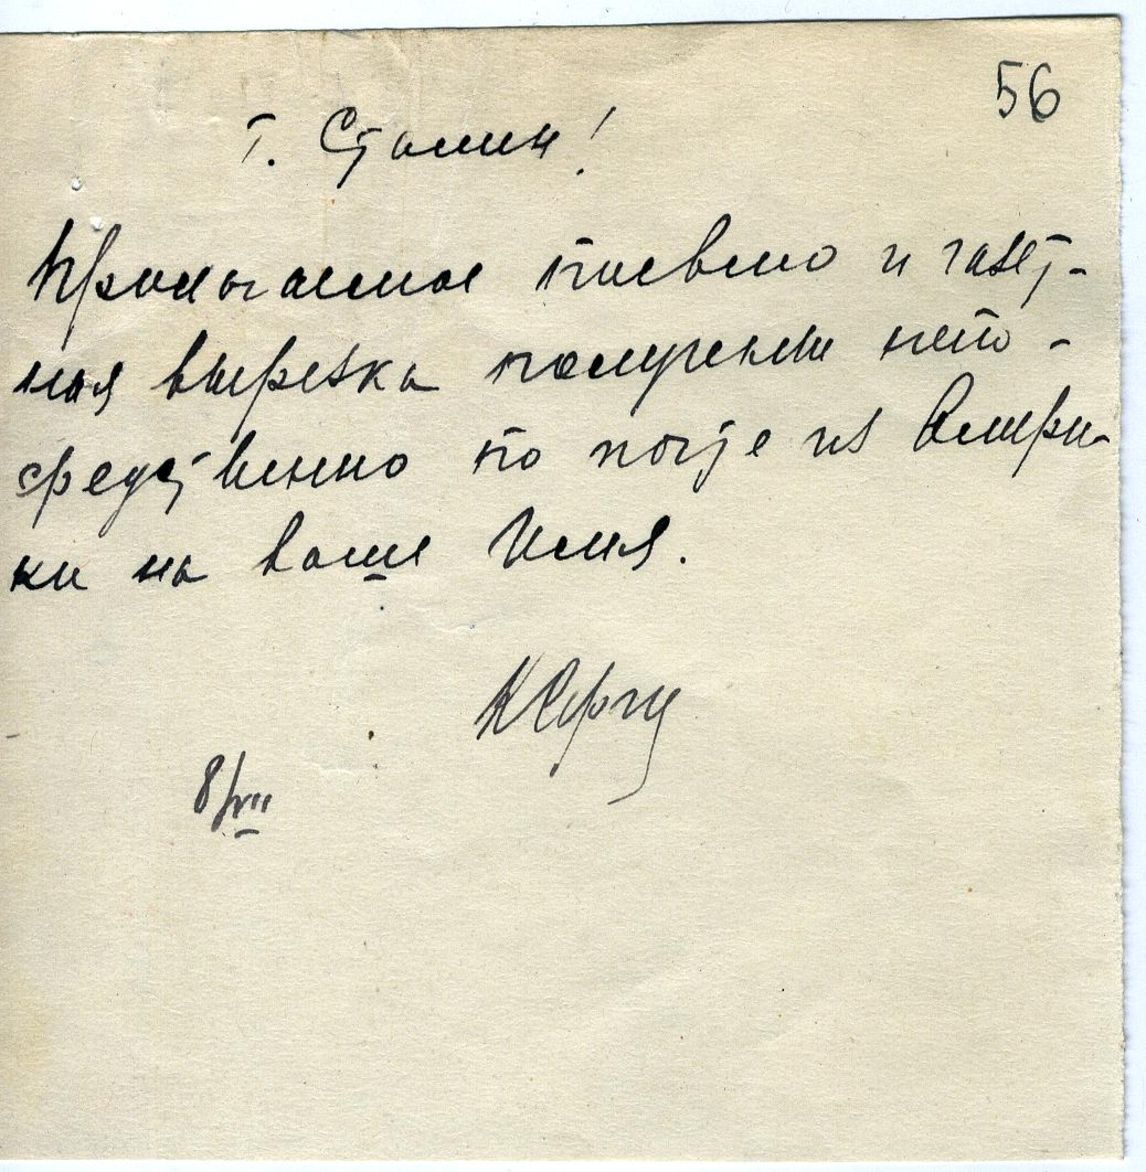 56
Т. Сталин!
Прилагаемое письмо и газет-
ная вырезка получены непо-
средственно по почте из Амери-
ки на ваше Имя.
8/VII